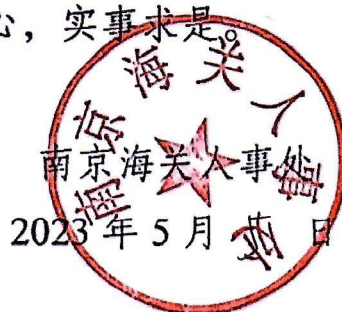 心，实事求是。
南京海关人事处
2023 年 5 月 日
南京海关人事处